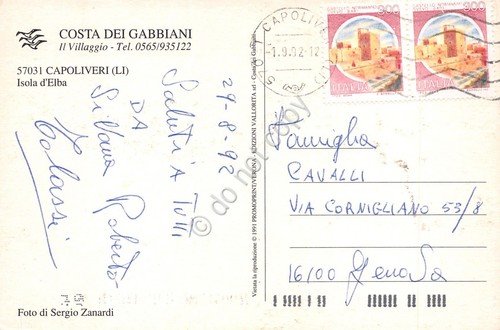 COSTA DEI GABBIANI
Il Villaggio - Tel. 0565/935122
57031 CAPOLIVERI (LI)
Isola d'Elba
29-8-92
Saluti A Tutti
DA
Silvana Roberto
Colassi
Foto di Sergio Zanardi
Vietata la riproduzione © 1991 PROMOPRINT/VERONA - EDIZIONI VALLORITA srl - Costa dei Gabbiani
CAPOLIVERI
1.9.92-12
300
ITALIA
300
ITALIA
Famiglia
CAVALLI
VIA CORNIGLIANO 53/8
16100 Genova
do not copy